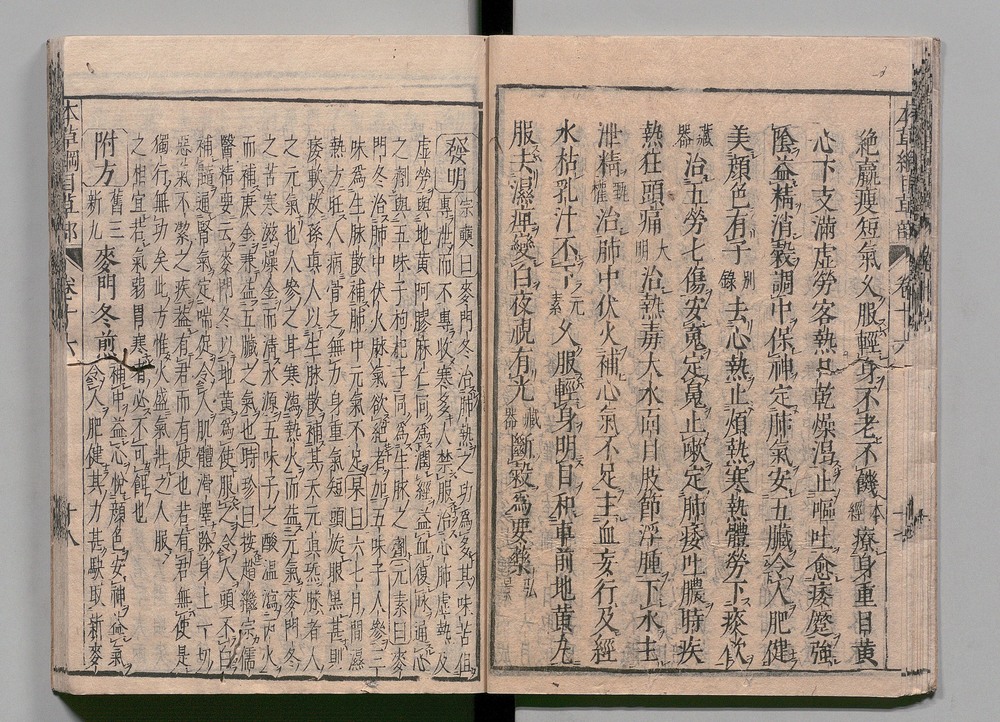 本草綱目草部 卷十六
絶羸瘦短氣久服輕身不老不饑本經療身重目黃
心下支滿虛勞客熱口乾燥渴止嘔吐愈痿蹷強
陰益精消穀調中保神定肺氣安五臟令人肥健
美顏色有子別錄去心熱止煩熱寒熱體勞下痰飲
藏器治五勞七傷安魂定魄止嗽定肺痿吐膿時疾
熱狂頭痛大明治熱毒大水面目肢節浮腫下水主
泄精甄權治肺中伏火補心氣不足主血妄行及經
水枯乳汁不下元素久服輕身明目和車前地黃丸
服去濕痺變白夜視有光藏器斷穀爲要藥弘景
發明宗奭曰麥門冬治肺熱之功爲多其味苦但
專泄而不專收寒多人禁服治心肺虛熱及
虛勞與地黃阿膠麻仁同爲潤經益血復脉通心
之劑與五味子枸杞子同爲生脉之劑元素曰麥
門冬治肺中伏火脉氣欲絶者加五味子人參三
味爲生脉散補肺中元氣不足杲曰六七月間濕
熱方旺人病骨乏無力身重氣短頭旋眼黑甚則
痿軟故孫真人以生脉散補其天元真氣脉者人
之元氣也人參之甘寒瀉熱火而益元氣麥門冬
之苦寒滋燥金而清水源五味子之酸溫瀉丙火
而補庚金兼益五臟之氣也時珍曰按趙繼宗儒
醫精要云麥門冬以地黃爲使服之令人頭不白
補髓通腎氣定喘促令人肌體滑澤除身上一切
惡氣不潔之疾蓋有君而有使也若有君無使是
獨行無功矣此方惟火盛氣壯之人服
之相宜若氣弱胃寒者必不可餌也
附方舊三新九麥門冬煎補中益心悅顏色安神益氣
令人肥健其力甚駛取新麥
本草綱目草部 卷十六 十八